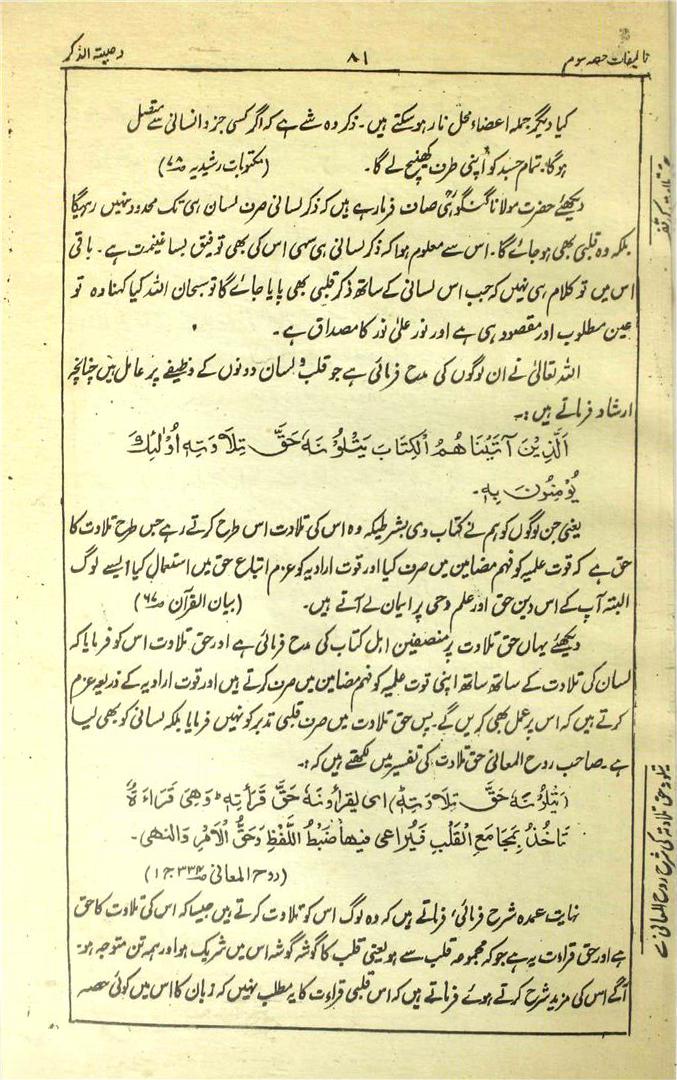 تالیفات حصہ سوم
۸۱
وصیۃ الذکر
کیا دیگر جملہ اعضاء محل نار ہو سکتے ہیں۔ ذکر وہ شے ہے کہ اگر کسی جزو انسانی سے متصل
ہوگا، تمام جسد کو اپنی طرف کھینچ لے گا۔ (مکتوبات رشیدیہ ص۷۸)
دیکھئے حضرت مولانا گنگوہیؒ صاف فرما رہے ہیں کہ ذکر لسانی صرف لسان ہی تک محدود نہیں رہیگا
بلکہ وہ قلبی بھی ہو جائے گا۔ اس سے معلوم ہوا کہ ذکر لسانی ہی سہی اس کی بھی توفیق بسا غنیمت ہے۔ باقی
اس میں تو کلام ہی نہیں کہ جب اس لسانی کے ساتھ ذکر قلبی بھی پایا جائے گا تو سبحان اللہ کیا کہنا وہ تو
عین مطلوب اور مقصود ہی ہے اور نور علیٰ نور کا مصداق ہے۔
اللہ تعالیٰ نے ان لوگوں کی مدح فرمائی ہے جو قلب و لسان دونوں کے وظیفے پر عامل ہیں چنانچہ
ارشاد فرماتے ہیں:۔
اَلَّذِیْنَ آتَیْنَا هُمُ الْکِتَابَ یَتْلُوْنَهٗ حَقَّ تِلَاوَتِهٖ اُوْلٰئِكَ
یُوْمِنُوْنَ بِهٖ۔
یعنی جن لوگوں کو ہم نے کتاب دی بشرطیکہ وہ اس کی تلاوت اس طرح کرتے رہے جس طرح تلاوت کا
حق ہے کہ قوت علمیہ کو فہم مضامین میں صرف کیا اور قوت ارادیہ کو عزم اتباع حق میں استعمال کیا ایسے لوگ
البتہ آپ کے اس دین حق اور علم وحی پر ایمان لے آتے ہیں۔ (بیان القرآن ص۶۷)
دیکھئے یہاں حق تلاوت پر منصفین اہل کتاب کی مدح فرمائی ہے اور حق تلاوت اس کو فرمایا کہ
لسان کی تلاوت کے ساتھ ساتھ اپنی قوت علمیہ کو فہم مضامین میں صرف کرتے ہیں اور قوت ارادیہ کے ذریعہ عزم
کرتے ہیں کہ اس پر عمل بھی کریں گے۔ پس حق تلاوت میں صرف قلبی تدبر کو نہیں فرمایا بلکہ لسانی کو بھی لیا
ہے۔ صاحب روح المعانی حق تلاوت کی تفسیر میں لکھتے ہیں کہ:۔
(یَتْلُوْنَهٗ حَقَّ تِلَاوَتِهٖ) ای یقرأونهٗ حَقَّ قَرَأَتِهٖ وَهِیَ قَرَاءَةٌ
تَاخُذُ بِمَجَامَعِ الْقَلْبِ فَیُرَاعی فیها ضَبْطُ اللَّفْظِ وَحَقُّ الْاَمْرِ وَالنهی۔
(روح المعانی ص۳۳۴ ج۱)
نہایت عمدہ شرح فرمائی، فرماتے ہیں کہ وہ لوگ اس کو تلاوت کرتے ہیں جیسا کہ اس کی تلاوت کا حق
ہے اور حق قراءت یہ ہے جو کہ مجموعہ قلب سے ہو یعنی قلب کا گوشہ گوشہ اس میں شریک ہو اور ہمہ تن متوجہ ہو۔
آگے اس کی مزید شرح کرتے ہوئے فرماتے ہیں کہ اس قلبی قراءت کا یہ مطلب نہیں کہ زبان کا اس میں کوئی حصہ
یتلونہ حق تلاوتہ کی شرح روح المعانی سے